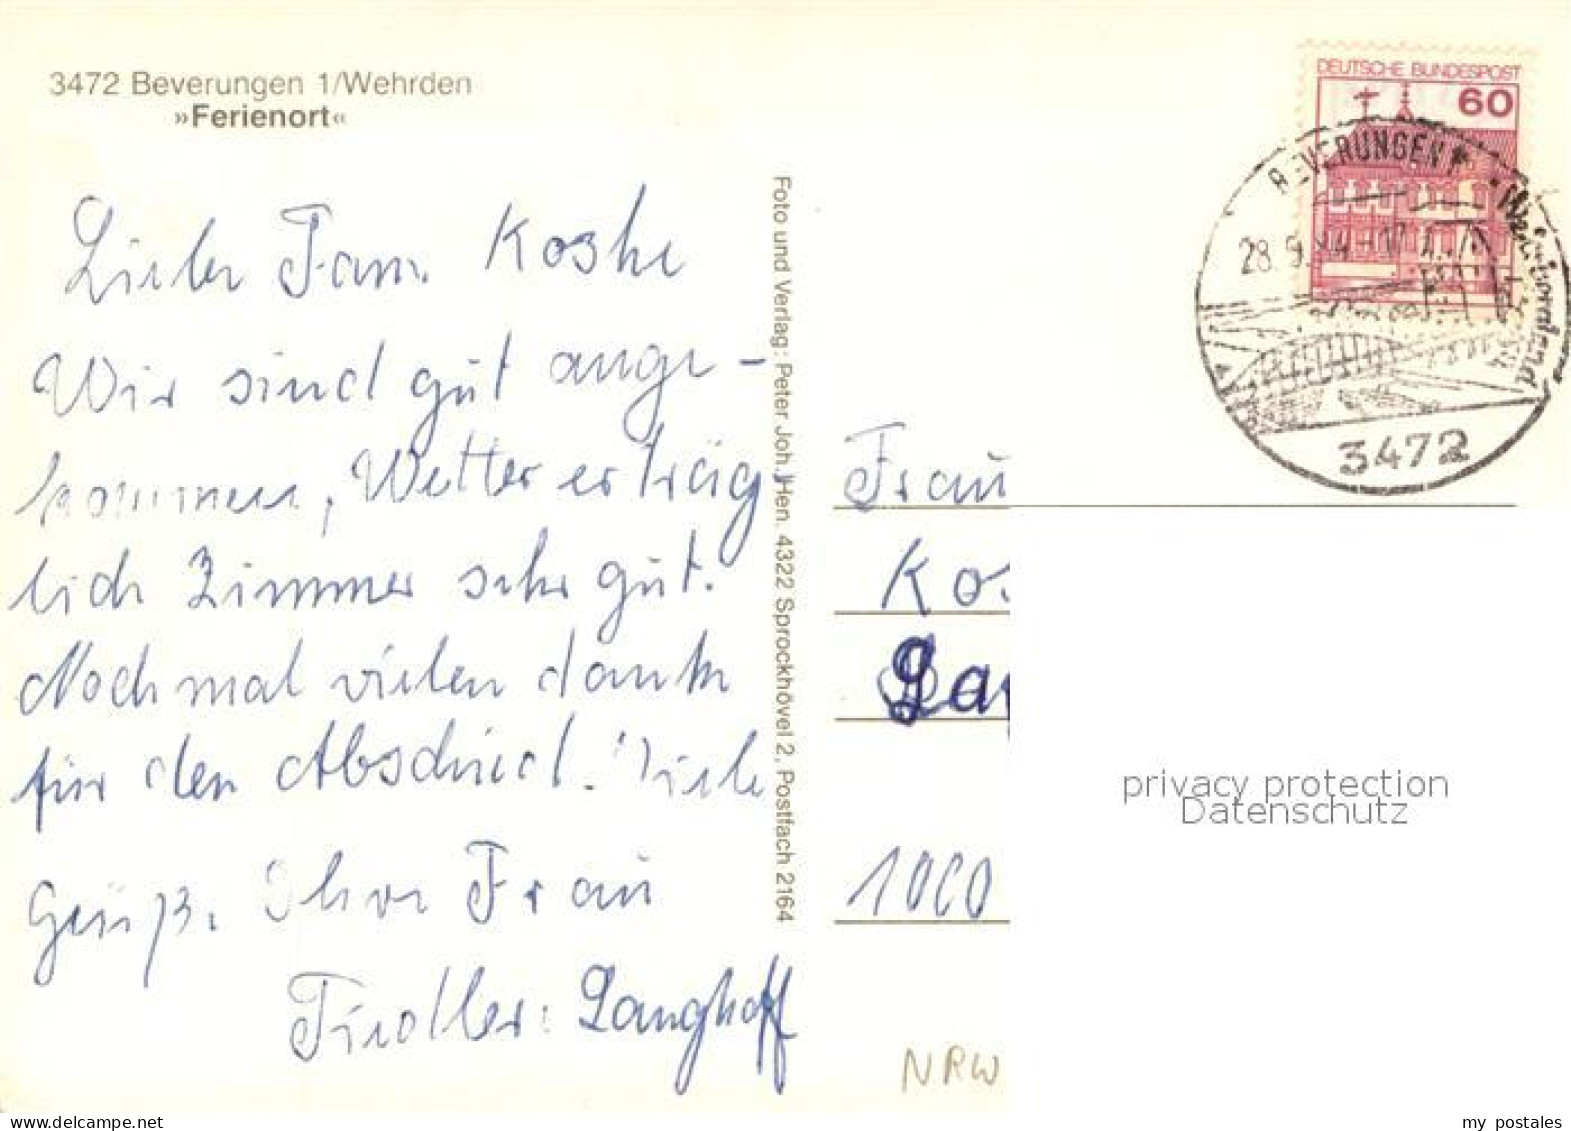 3472 Beverungen 1/Wehrden
»Ferienort«
Liebe Fam. Koske
Wir sind gut ange-
kommen, Wetter erträg
lich Zimmer sehr gut.
Noch mal vielen dank
für den Abschied. Viele
Grüß. Ihre Frau
Fiedler: Langhoff
Foto und Verlag: Peter Joh. Hen. 4322 Sprockhövel 2, Postfach 2164
DEUTSCHE BUNDESPOST
60
BEVERUNGEN 1
28.9.84-17
3472
Frau
Ko
1000
privacy protection
Datenschutz
NRW
my postales